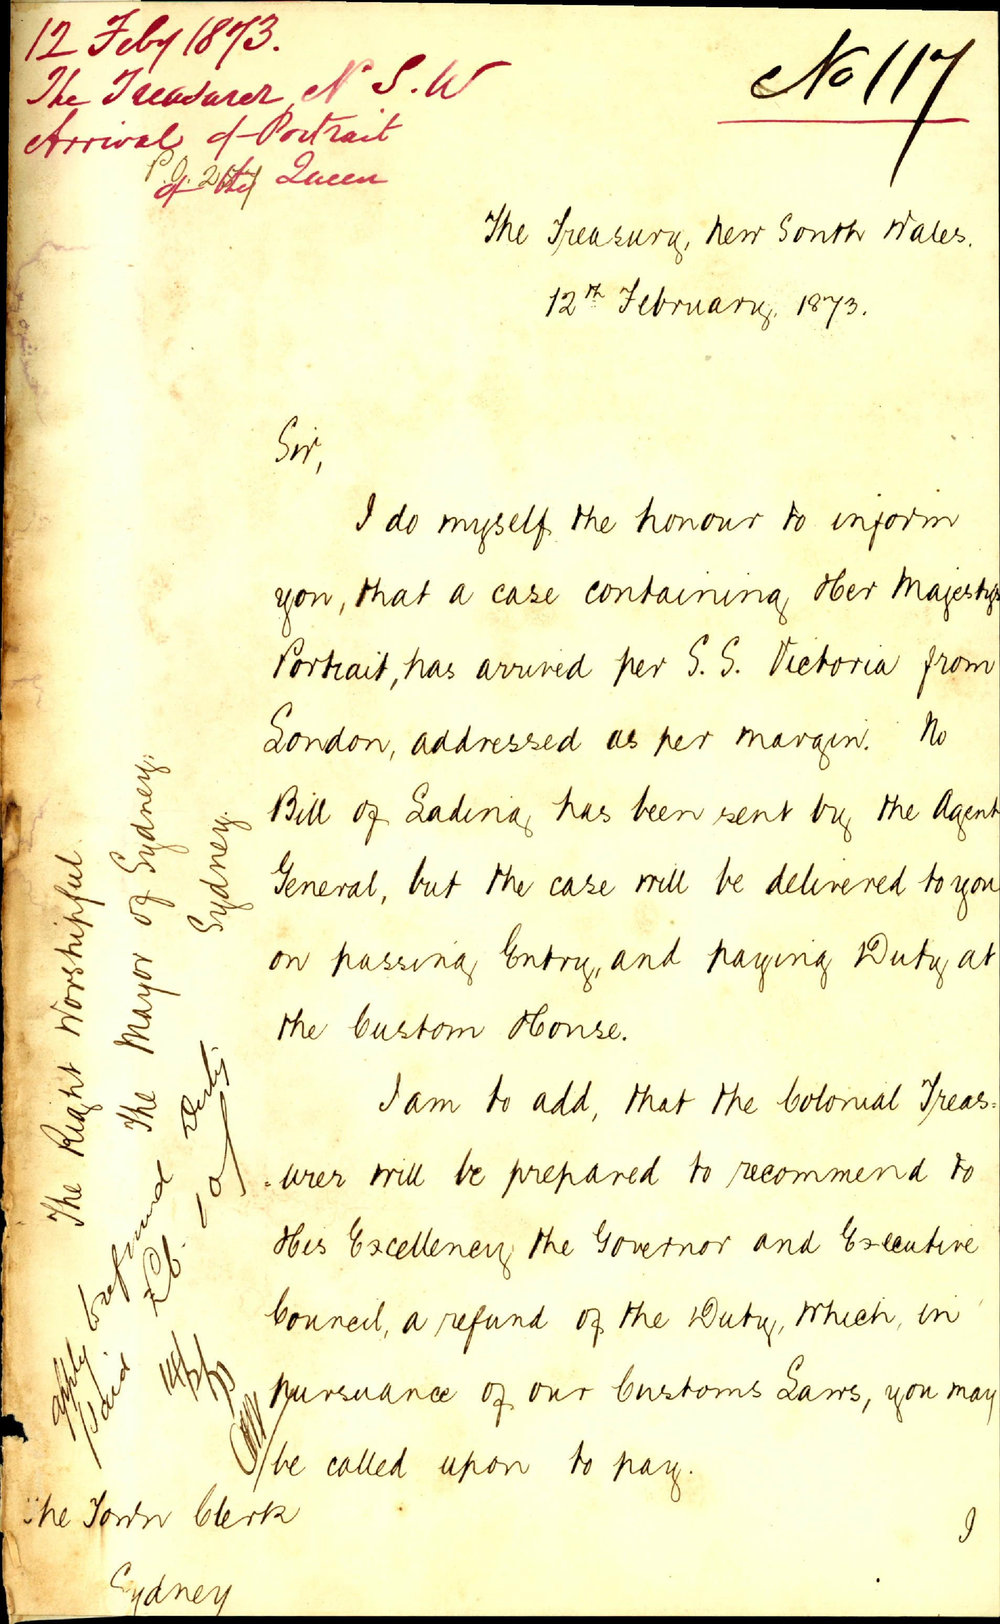 12 Feby 1873.
The Treasurer, N S. W
Arrival of Portrait
of the Queen
No 117
The Treasury, New South Wales.
12th February, 1873.
Sir,
I do myself the honour to inform
you, that a case containing Her Majesty's
Portrait, has arrived per S. S. Victoria from
London, addressed as per margin. No
Bill of Lading has been sent by the Agent
General, but the case will be delivered to you
on passing Entry, and paying Duty at
the Custom House.
I am to add, that the Colonial Treas-
-urer will be prepared to recommend to
His Excellency the Governor and Executive
Council, a refund of the Duty, which, in
pursuance of our Customs Laws, you may
be called upon to pay.
I
The Town Clerk
Sydney
The Right Worshipful
The Mayor of Sydney,
Sydney.
apply to refund Duty
paid